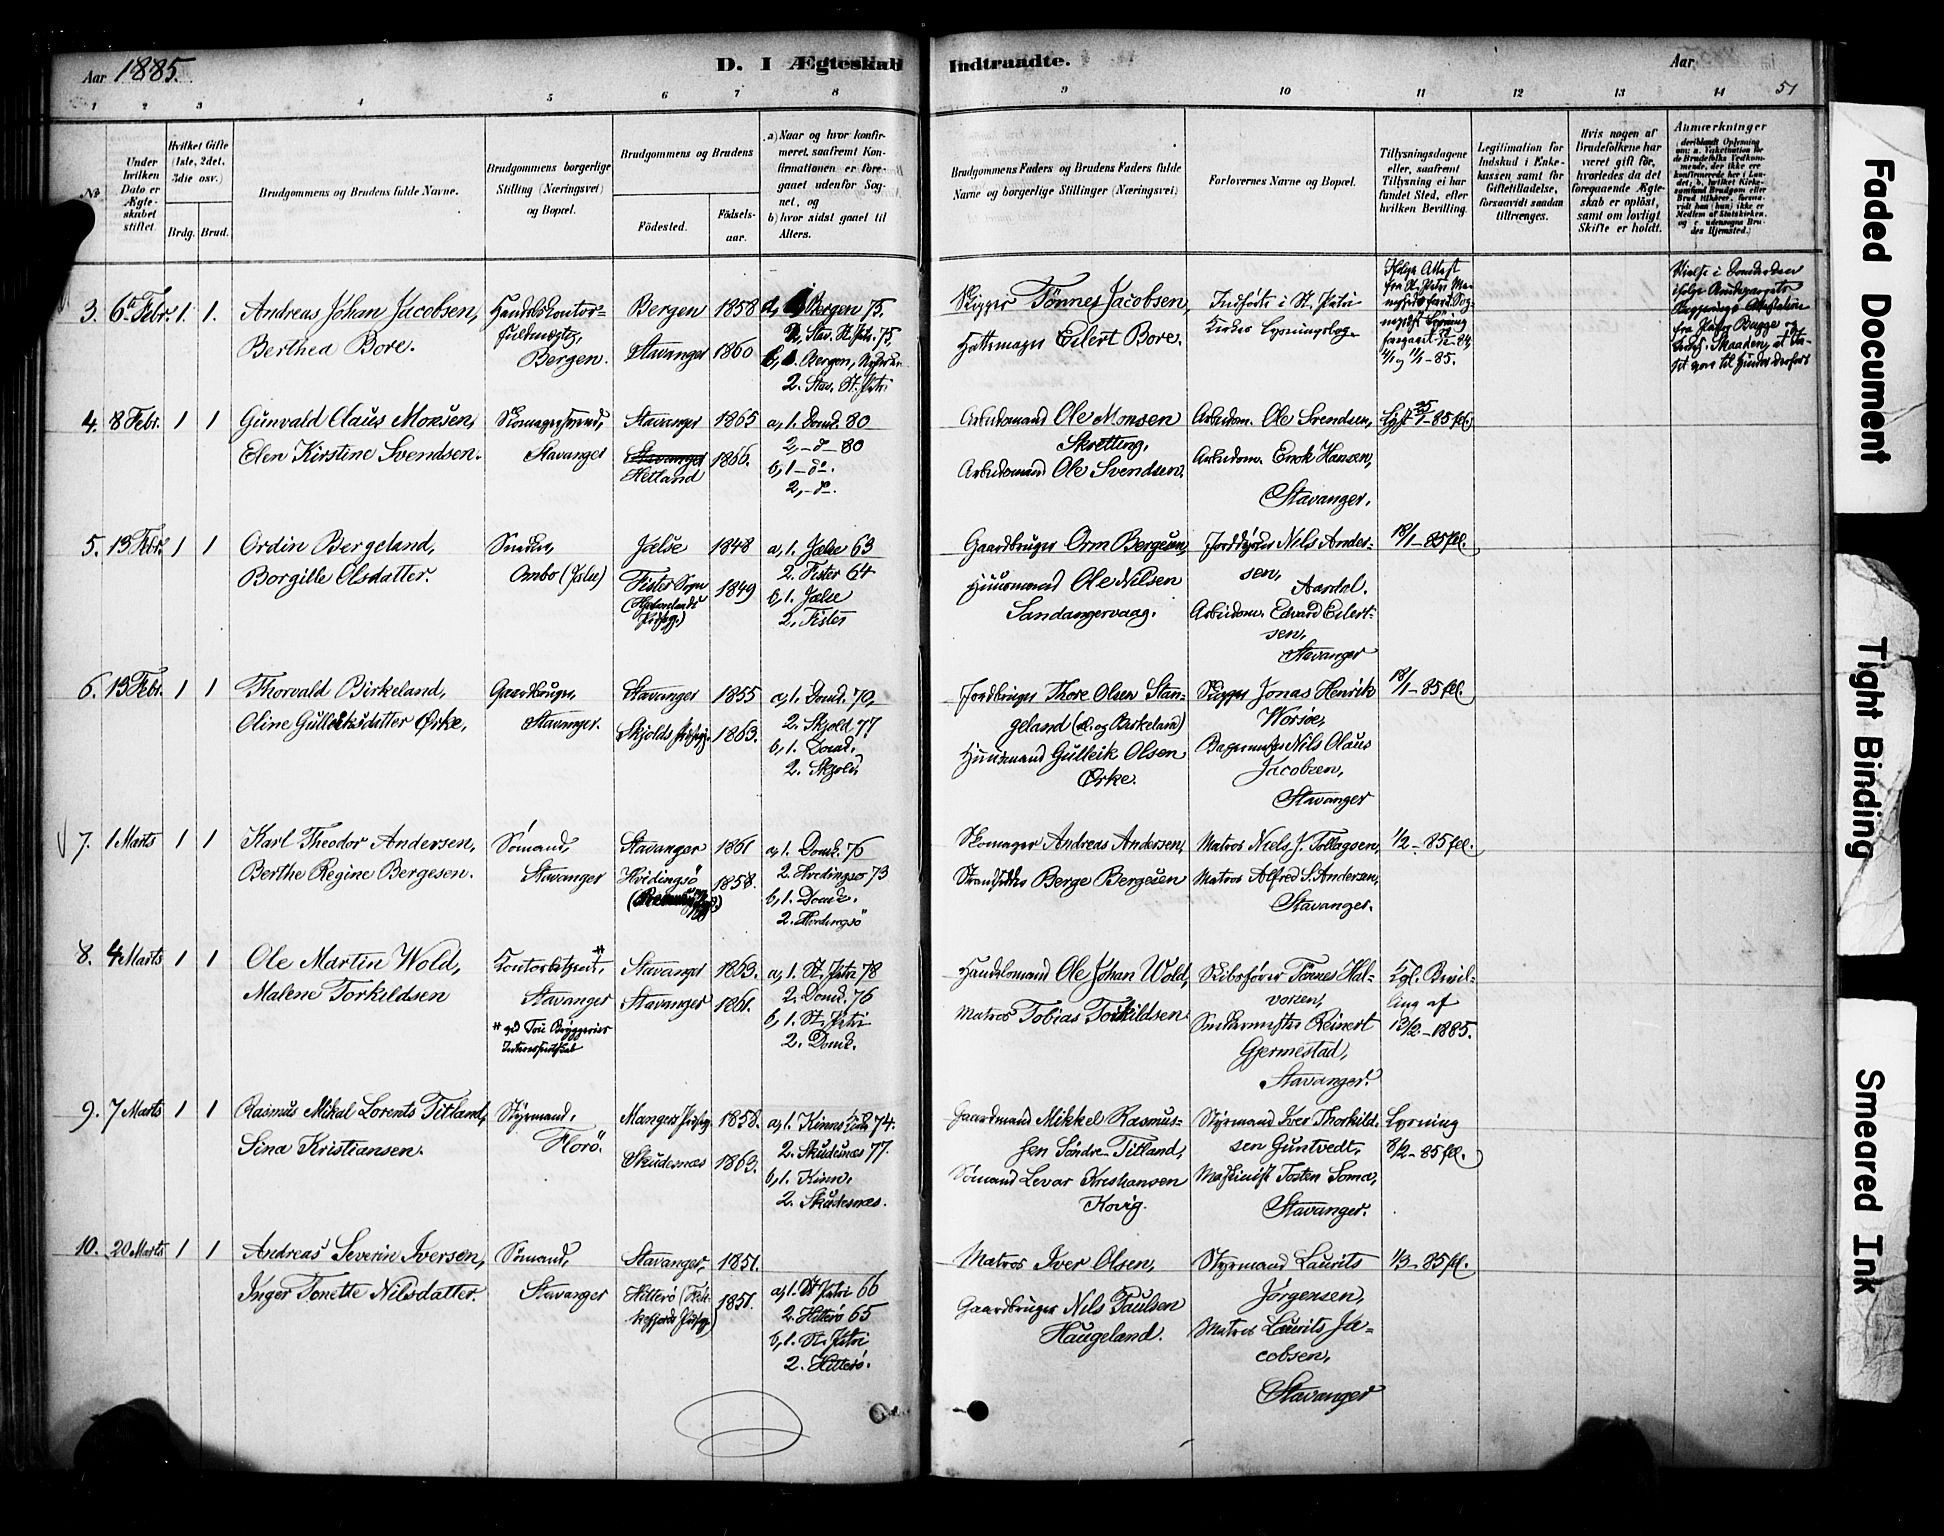 Aar 1885.
D. I Ægteskab Indtraadte.
Aar
1 2 3 4 5 6 7 8 9 10 11 12 13 14 51
No
Under hvilken Dato er Ægteskabet stiftet.
Hvilket Gifte (1ste, 2det, 3die osv.)
Brdg. Brud.
Brudgommens og Brudens fulde Navne.
Brudgommens borgerlige Stilling (Næringsvei) og Bopæl.
Brudgommens og Brudens
Fødested.
Fødselsaar.
a) Naar og hvor konfirmeret, saafremt Konfirmationen er foregaaet udenfor Sognet, og
b) hvor sidst gaaet til Alters.
Brudgommens Faders og Brudens Faders fulde Navne og borgerlige Stillinger (Næringsvei)
Forlovernes Navne og Bopæl.
Tillysningsdagene eller, saafremt Tillysning ei har fundet Sted, efter hvilken Bevilling.
Legitimation for Indskud i Enkekassen samt for Giftetilladelse, forsaavidt saadan tiltrænges.
Hvis nogen af Brudefolkene har været gift før, hvorledes da det foregaaende Ægteskab er opløst, samt om lovligt Skifte er holdt.
Anmærkninger
3. 6te Febr. 1. 1.
Andreas Johan Jacobsen,
Berthea Bore.
Handelskontor-
fuldmægtig,
Bergen.
Bergen 1858
Stavanger 1860
a, 1. Bergen 75.
2. Stav. St. Petri 75,
b, 1. Bergen,
2. Stav. St. Petri
Skipper Tönnes Jacobsen,
Hattemager Eilert Bore.
Indførte i St. Petri
Kirkes Lysningsbog
Ifølge Attest
fra St. Petri Me-
nighed
11/1 - 85.
4. 8 Febr. 1 1
Gunvald Claus Monsen,
Elen Kirstine Svendsen.
Skomagersvend,
Stavanger
Stavanger 1865
Stavanger
Hetland 1866.
a, 1. Domk. 80
2, - do - 80
b, 1 - do -
2, - do -
Arbeidsmand Ole Monsen
Skretting,
Arbeidsmand Ole Svendsen.
Arbeidsm. Ole Svendsen,
Arbeidsm. Enok Hansen,
Stavanger.
Lyst 25/1 - 85 fl.
5. 13 Febr. 1 1
Ordin Bergeland,
Borgille Olsdatter.
Smed,
Ombo (Jelse)
Jelse 1848
Fister Sogn
(Hjelmelands
Prstgj.) 1849
a, 1. Jelse 63
2. Fister 64
b, 1. Jelse
2. Fister
Gaardbruger Orm Bergesen,
Huusmand Ole Nilsen
Sandangervaag.
Jorddyrker Nils Ander-
sen,
Aardal.
Arbeidsm. Edvard Eilert-
sen,
Stavanger
18/1 - 85 fl.
6. 13 Febr. 1 1
Thorvald Birkeland,
Oline Gulleiksdatter Ørke,
Gaardbruger,
Stavanger.
Stavanger 1855
Skjolds Prstgj. 1863.
a, 1. Domk. 70,
2. Skjold 77
b, 1. Domk.
2. Skjold
Jordbruger Thore Olsen Stan-
geland (og Birkeland)
Huusmand Gulleik Olsen
Ørke.
Skipper Jonas Henrik
Worsøe,
Bagermester Nils Olaus
Jacobsen,
Stavanger
18/1 - 85 fl.
7. 1 Marts 1 1
Karl Theodor Andersen,
Berthe Regine Bergesen.
Sömand,
Stavanger
Stavanger 1861
Hvidingsö 1858.
a, 1. Domk. 76
2. Hvidingsö 73
b, 1. Domk.
2. Hvidingsö
Skomager Andreas Andersen,
Strandsidder Berge Bergesen
Matros Niels J. Tollagsen,
Matros Alfred S. Andersen,
Stavanger.
1/2 - 85 fl.
8. 4 Marts 1 1
Ole Martin Wold,
Malene Torkildsen
Kontorbetjent,
Stavanger
ved Tou Bryggeries
Interessentskab
Stavanger 1863.
Stavanger 1861.
a, 1. St. Petri 78
2. Domk. 76
b, 1. St. Petri
2. Domk.
Handelsmand Ole Johan Wold,
Matros Tobias Torkildsen
Skibsfører Tönnes Hal-
vorsen,
Snedkermester Reinert
Gjermestad,
Stavanger.
Kgl. Bevil-
ling af
13/2 - 1885.
9. 7 Marts 1 1
Rasmus Mikal Lorents Titland,
Sina Kristiansen.
Styrmand,
Florö.
Mangers Prstgj. 1858.
Skudesnæs 1863.
a, 1. Kinns Kirke 74.
2. Skudesnæs 77.
b, 1. Kinn.
2. Skudesnæs.
Gaardmand Mikkel Rasmus-
sen Söndre Titland,
Sømand Levar Kristiansen
Kovig.
Styrmand Iver Thorkild-
sen Guntvedt,
Maskinist Tosten Soma,
Stavanger.
Lysning
8/2 - 85 fl.
10. 20 Marts 1 1
Andreas Severin Iversen,
Inger Tonette Nilsdatter.
Sömand,
Stavanger
Stavanger, 1851.
Hitterö (Flek-
kefjords Prstgj.) 1851.
a, 1. St. Petri 66
2. Hitterö 65
b, 1. St. Petri
2. Hitterö.
Matros Iver Olsen,
Gaardbruger Nils Paulsen
Haugeland.
Styrmand Laurits
Jörgensen,
Matros Laurits Ja-
cobsen,
Stavanger
1/3 - 85 fl.
Faded Document
Tight Binding
Smeared Ink